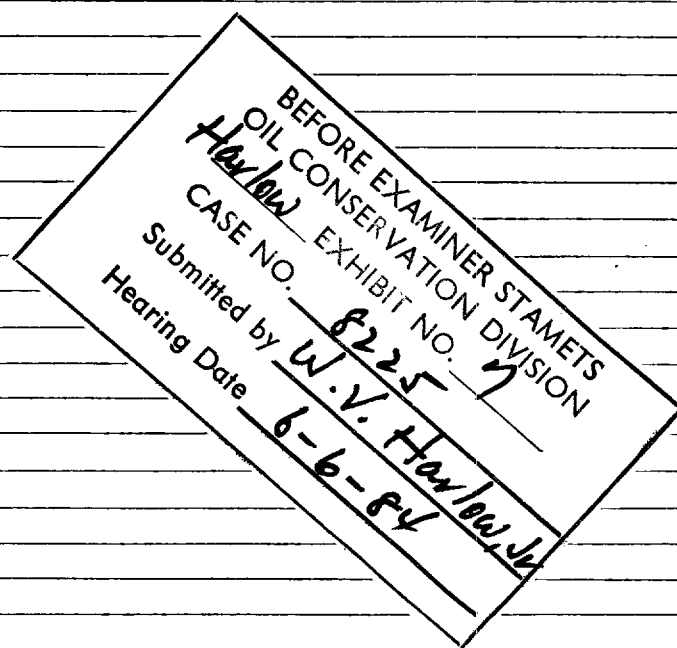 BEFORE EXAMINER STAMETS
OIL CONSERVATION DIVISION
Harlow EXHIBIT NO. 7
CASE NO. 8225
Submitted by W.V. Harlow, Jr
Hearing Date 6-6-84